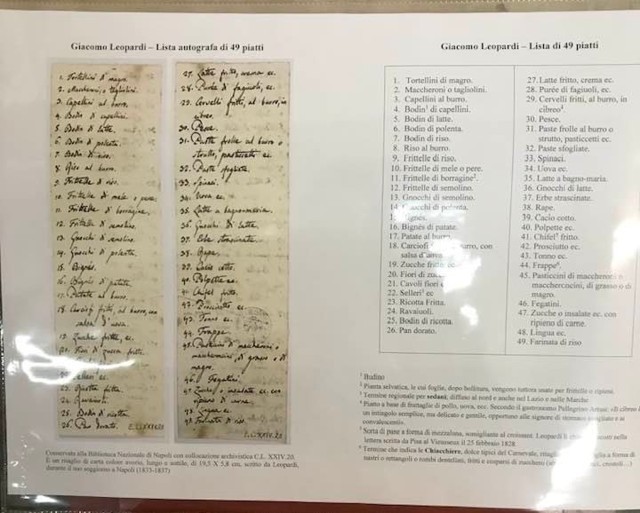 Giacomo Leopardi – Lista autografa di 49 piatti
1. Tortellini di magro.
2. Maccheroni, o tagliolini.
3. Capellini al burro.
4. Bodin di capellini.
5. Bodin di latte.
6. Bodin di polenta.
7. Bodin di riso.
8. Riso al burro.
9. Frittelle di riso.
10. Frittelle di mele o pere.
11. Frittelle di borragine.
12. Frittelle di semolino.
13. Gnocchi di semolino.
14. Gnocchi di polenta.
15. Bignès.
16. Bignès di patate.
17. Patate al burro.
18. Carciofi fritti, al burro, con
salsa d'uova.
19. Zucche fritte, ec.
20. Fiori di zucca fritti.
22. Selleri ec.
23. Ricotta fritta.
24. Ravaiuoli.
25. Bodin di ricotta.
26. Pan dorato.
27. Latte fritto, crema ec.
28. Purée di fagiuoli, ec.
29. Cervelli fritti, al burro, in
cibreo.
30. Pesce.
31. Paste frolle al burro o
strutto, pasticcetti ec.
32. Paste sfogliate.
33. Spinaci.
34. Uova ec.
35. Latte a bagno-maria.
36. Gnocchi di latte.
37. Erbe strascinate.
38. Rape.
39. Cacio cotto.
40. Polpette ec.
41. Chifel fritto.
42. Prosciutto ec.
43. Tonno ec.
44. Frappe.
45. Pasticcini di maccheroni o
maccheroncini, di grasso o di
magro.
46. Fegatini.
47. Zucche o insalate ec. con
ripieno di carne.
48. Lingua ec.
49. Farinata di riso
C.L.XXIV.20
C.L.XXIV.20
Conservata alla Biblioteca Nazionale di Napoli con collocazione archivistica C.L. XXIV.20.
È un ritaglio di carta colore avorio, lungo e sottile, di 19,5 X 5,8 cm, scritto da Leopardi,
durante il suo soggiorno a Napoli (1833-1837)
Giacomo Leopardi – Lista di 49 piatti
1. Tortellini di magro.
2. Maccheroni o tagliolini.
3. Capellini al burro.
4. Bodin¹ di capellini.
5. Bodin di latte.
6. Bodin di polenta.
7. Bodin di riso.
8. Riso al burro.
9. Frittelle di riso.
10. Frittelle di mele o pere.
11. Frittelle di borragine².
12. Frittelle di semolino.
13. Gnocchi di semolino.
14. Gnocchi di polenta.
15. Bignés.
16. Bignés di patate.
17. Patate al burro.
18. Carciofi burro, con
salsa d'
19. Zucche fritte
20. Fiori di zucca
21. Cavoli fiori
22. Selleri³ ec
23. Ricotta Fritta.
24. Ravaiuoli.
25. Bodin di ricotta.
26. Pan dorato.
27. Latte fritto, crema ec.
28. Purée di fagiuoli, ec.
29. Cervelli fritti, al burro, in
cibreo⁴.
30. Pesce.
31. Paste frolle al burro o
strutto, pasticcetti ec.
32. Paste sfogliate.
33. Spinaci.
34. Uova ec.
35. Latte a bagno-maria.
36. Gnocchi di latte.
37. Erbe strascinate.
38. Rape.
39. Cacio cotto.
40. Polpette ec.
41. Chifel⁵ fritto.
42. Prosciutto ec.
43. Tonno ec.
44. Frappe⁶.
45. Pasticcini di maccheroni o
maccheroncini, di grasso o di
magro.
46. Fegatini.
47. Zucche o insalate ec. con
ripieno di carne.
48. Lingua ec.
49. Farinata di riso
¹ Budino
² Pianta selvatica, le cui foglie, dopo bollitura, vengono tuttora usate per frittelle o ripieni.
³ Termine regionale per sedani, diffuso al nord e anche nel Lazio e nelle Marche
⁴ Piatto a base di frattaglie di pollo, uova, ecc. Secondo il gastronomo Pellegrino Artusi: «Il cibreo è
un intingolo semplice, ma delicato e gentile, opportuno alle signore di stomaco svogliato e ai
convalescenti».
⁵ Sorta di pane a forma di mezzaluna, somigliante al croissant. Leopardi li nella
lettera scritta da Pisa al Vieusseux il 25 febbraio 1828
⁶ Termine che indica le Chiacchiere, dolce tipici del Carnevale, a forma di
nastri o rettangoli o rombi dentellati, fritti